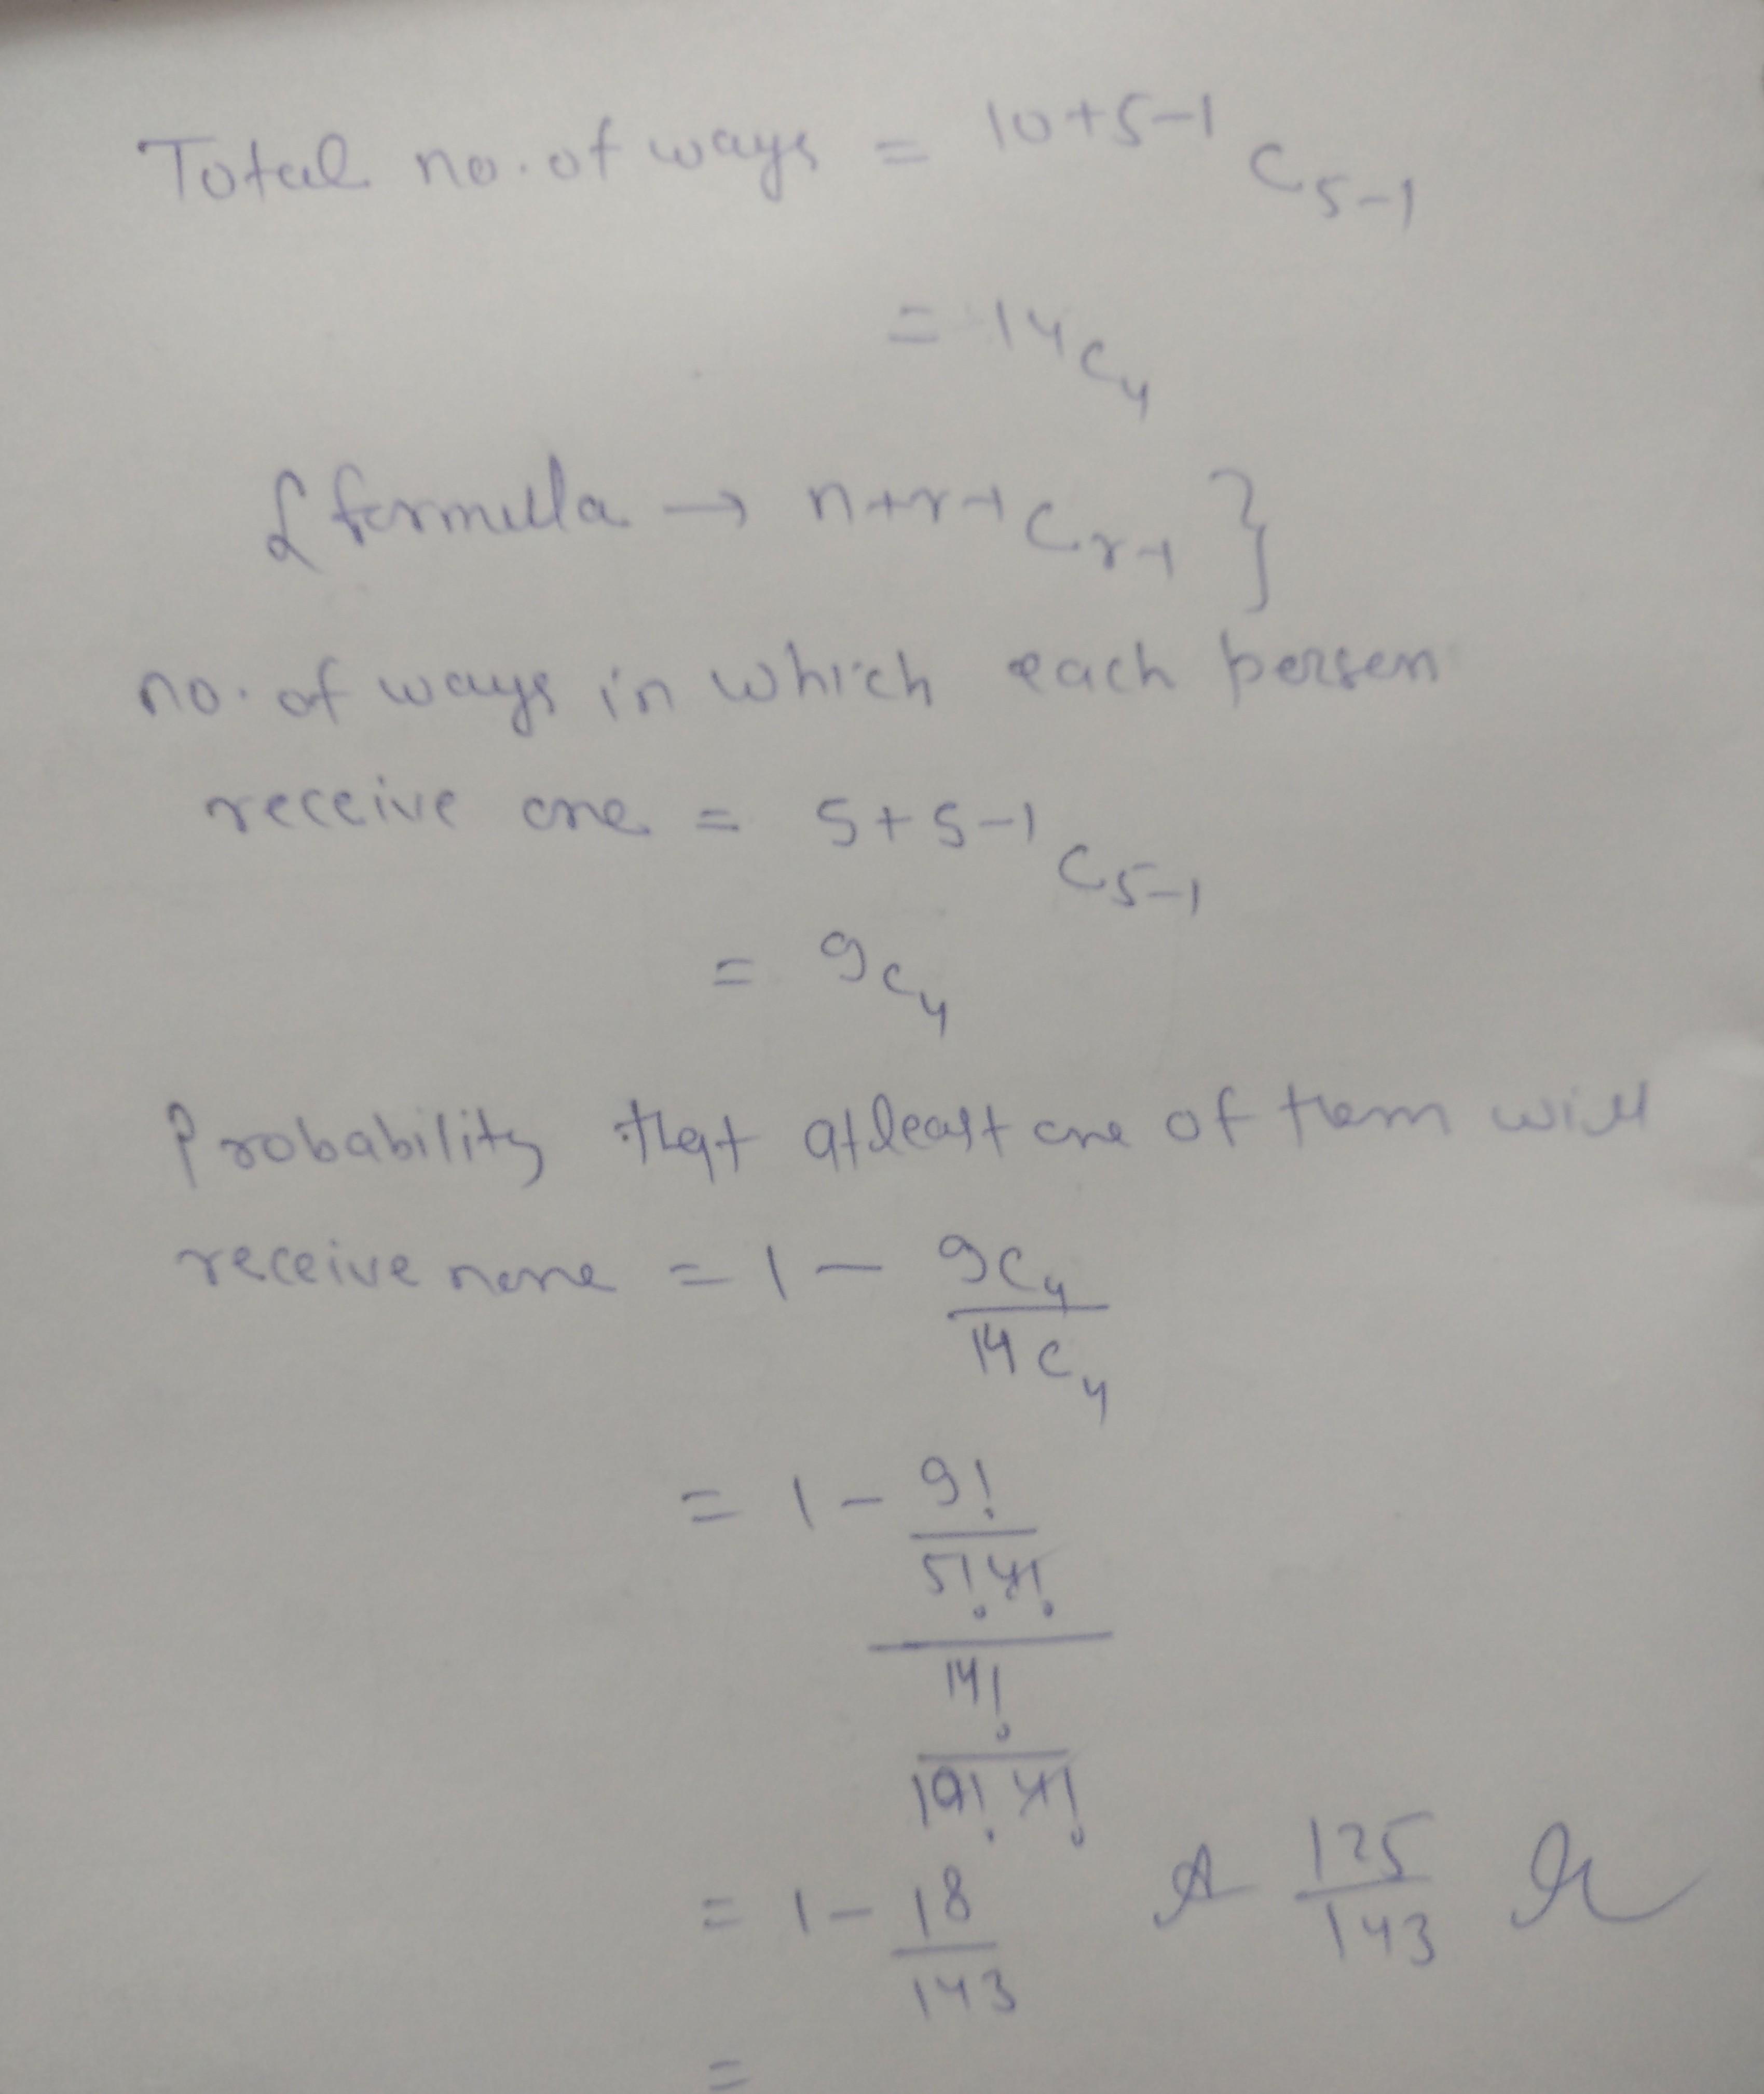 Total no. of ways = 10+5-1 C 5-1
= 14 C 4
{ formulla → n+r-1 C r-1 }
no. of ways in which each person
receive one = 5+5-1 C 5-1
= 9 C 4
Probability that atleast one of them will
receive none = 1 - 9C4 / 14C4
= 1 - 9! / 5! 4!
14!
10! 4!
= 1 - 18/143 125/143
=